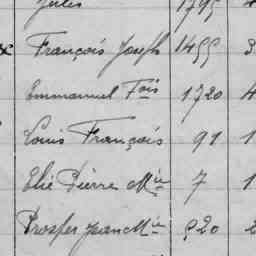 Jules 1795 4
x François Joseph 1455 3
Emmanuel Fois 1720 4
Louis François 91 1
Elie Pierre Mie 7 1
Prosper Jean Mie 920 2